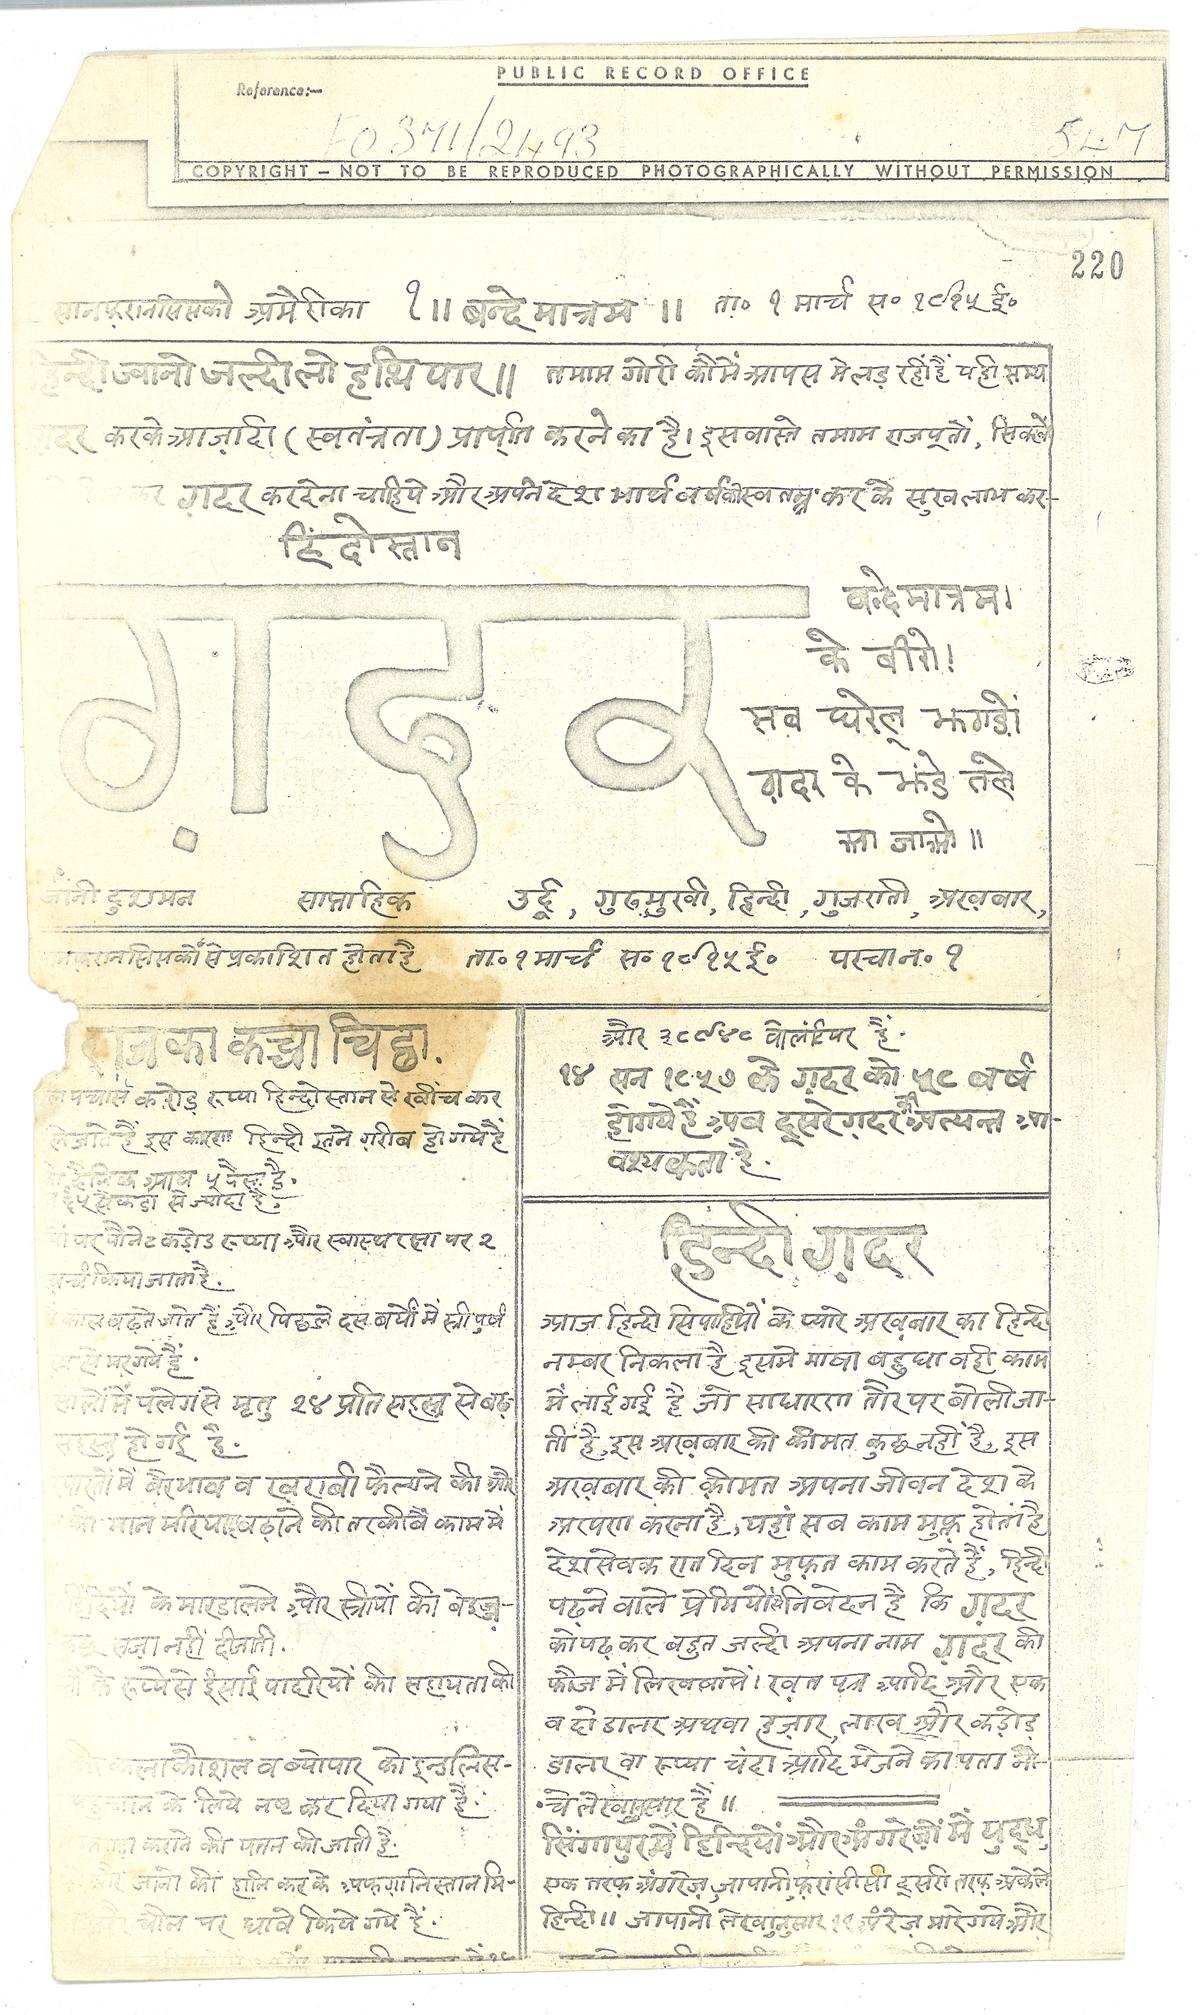 PUBLIC RECORD OFFICE
Reference:—
FO 371/2493
547
COPYRIGHT — NOT TO BE REPRODUCED PHOTOGRAPHICALLY WITHOUT PERMISSION
220
सानफ्रानसिसको अमैरीका १॥ बन्दे मात्रम ॥ ता० १ मार्च स० १९१५ ई०
हिन्दी ज्वानो जल्दी लो हथियार॥ तमाम गोरी कौमें आपस मे लड़ रहीं हैं यही समय
ग़दर करके आज़ादी (स्वतंत्रता) प्रार्प्त करने का है। इस वास्ते तमाम राजपूतों, सिक्खों
कर ग़दर करदेना चाहिये और अपने देश भार्थ वर्ष को स्वतन्त्र कर के सुख लाभ कर-
हिंदोस्तान
ग़दर
बन्देमात्रम।
के बीरो!
सब घरेलू झगड़ों
ग़दर के झंडे तले
आ जाओ॥
जानी दुशमन साप्ताहिक उर्दू, गुरुमुखी, हिन्दी, गुजराती, अख़बार,
सानफ्रानसिसको से प्रकाशित होता है ता० १ मार्च स० १९१५ ई० परचा न० १
राज का कच्चा चिट्ठा.
पचास करोड़ रूप्या हिन्दोस्तान से खींच कर
लेजाते हैं इस कारण हिन्दी इतने ग़रीब हो गये हैं
दैनिक आय ५ पैसा है.
६५ सैकड़ा से ज्यादा है.
पर पौने ८ कड़ोड रूप्या और स्वास्थ रक्षा पर २
खर्च किया जाता है.
काल बढ़ते जाते हैं और पिछले दस बर्षों में स्त्री पुर्ष
से मर गये हैं.
सालों में पलेग से मृत्यु २४ प्रति सहस्त्र से बढ़-
सहस्त्र हो गई है.
में बैरभाव व ख़राबी फैलाने की और
की मान मरियादा बढ़ाने की तरकीबें काम में
के मारडालने और स्त्रीयों की बेइज्ज़-
सज़ा नहीं दीजाती.
के रूप्ये से ईसाई पादरियों की सहायता की
कला कौशल व ब्योपार को इन्गलिस-
के लिये नष्ट कर दिया गया है.
कराने की यतन की जाती है.
और जानो की हानि कर के अफ़ग़ानिस्तान मि-
चीन पर धावे किये गये हैं.
और ३८९४८ वोलंटियर हैं.
१४ सन १८५७ के ग़दर को ५८ बर्ष
होगये हैं अब दूसरे ग़दर की अत्यन्त आ-
वश्यकता है.
हिन्दी ग़दर
आज हिन्दी सिपाहियों के प्यारे अख़बार का हिन्दी
नम्बर निकला है इसमे भाषा बहुधा वही काम
में लाई गई है जो साधारण तौर पर बोली जा-
ती है, इस अख़बार की कीमत कुछ नहीं है, इस
अख़बार की क़ीमत अपना जीवन देश के
अरपण करना है, यहां सब काम मुफ़्त होता है
देशसेवक रात दिन मुफ़त काम करते हैं, हिन्दी
पढ़ने वाले प्रेमियों से निवेदन है कि ग़दर
को पढ़ कर बहुत जल्दी अपना नाम ग़दर की
फौज में लिखवायें। ख़त पत्र आदि और एक
व दो डालर अथवा हज़ार, लाख और कड़ोड़
डालर वा रूप्या चंदा आदि भेजने का पता नी-
चे लेखानुसार है॥
सिंगापुर में हिन्दियों और अंगरेज़ों में युद्ध,
एक तरफ़ अंगरेज़, जापानी, फ़रांसीसी दूसरी तरफ़ अकेले
हिन्दी॥ जापानी लेखानुसार ११ अंग्रेज़ मारे गये और